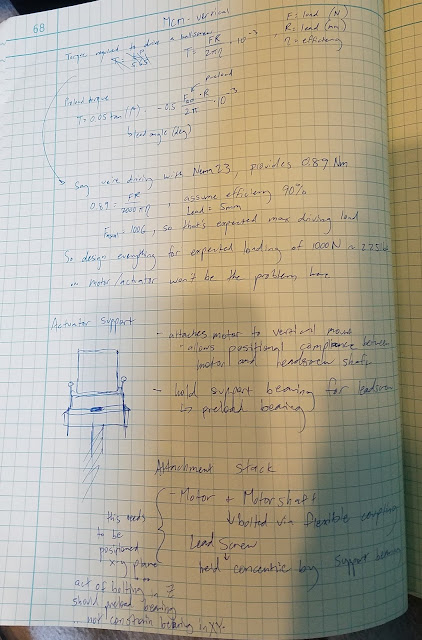 68
Mcm - vertical
Torque required to drive a ballscrew
T = FR/2πη · 10⁻³ , F: load (N)
R: lead (mm)
η = efficiency
preload
Preload torque
T = 0.05 tan (β) · -0.5 Fao · R/2π · 10⁻³
lead angle (deg)
Say we're driving with Nema 23, provides 0.89 Nm
0.89 = FR/2000πη , assume efficiency 90%
Lead = 5mm
= 1006, so that's expected max driving load
So design everything for expected loading of 1000N ≈ 225lb
motor/actuator won't be the problem here
Actuator support
- attaches motor to vertical
- allows positional compliance between
motor and leadscrew shaft
- hold support bearing for leadscrew
↳ preload bearing
Attachment stack
- Motor + Motorshaft
↓ bolted via flexible coupling
Lead Screw
held concentric by support bearing
this needs
to be
positioned
in x-y plane
act of bolting in Z
should preload bearing
... not constrain bearing in XY.